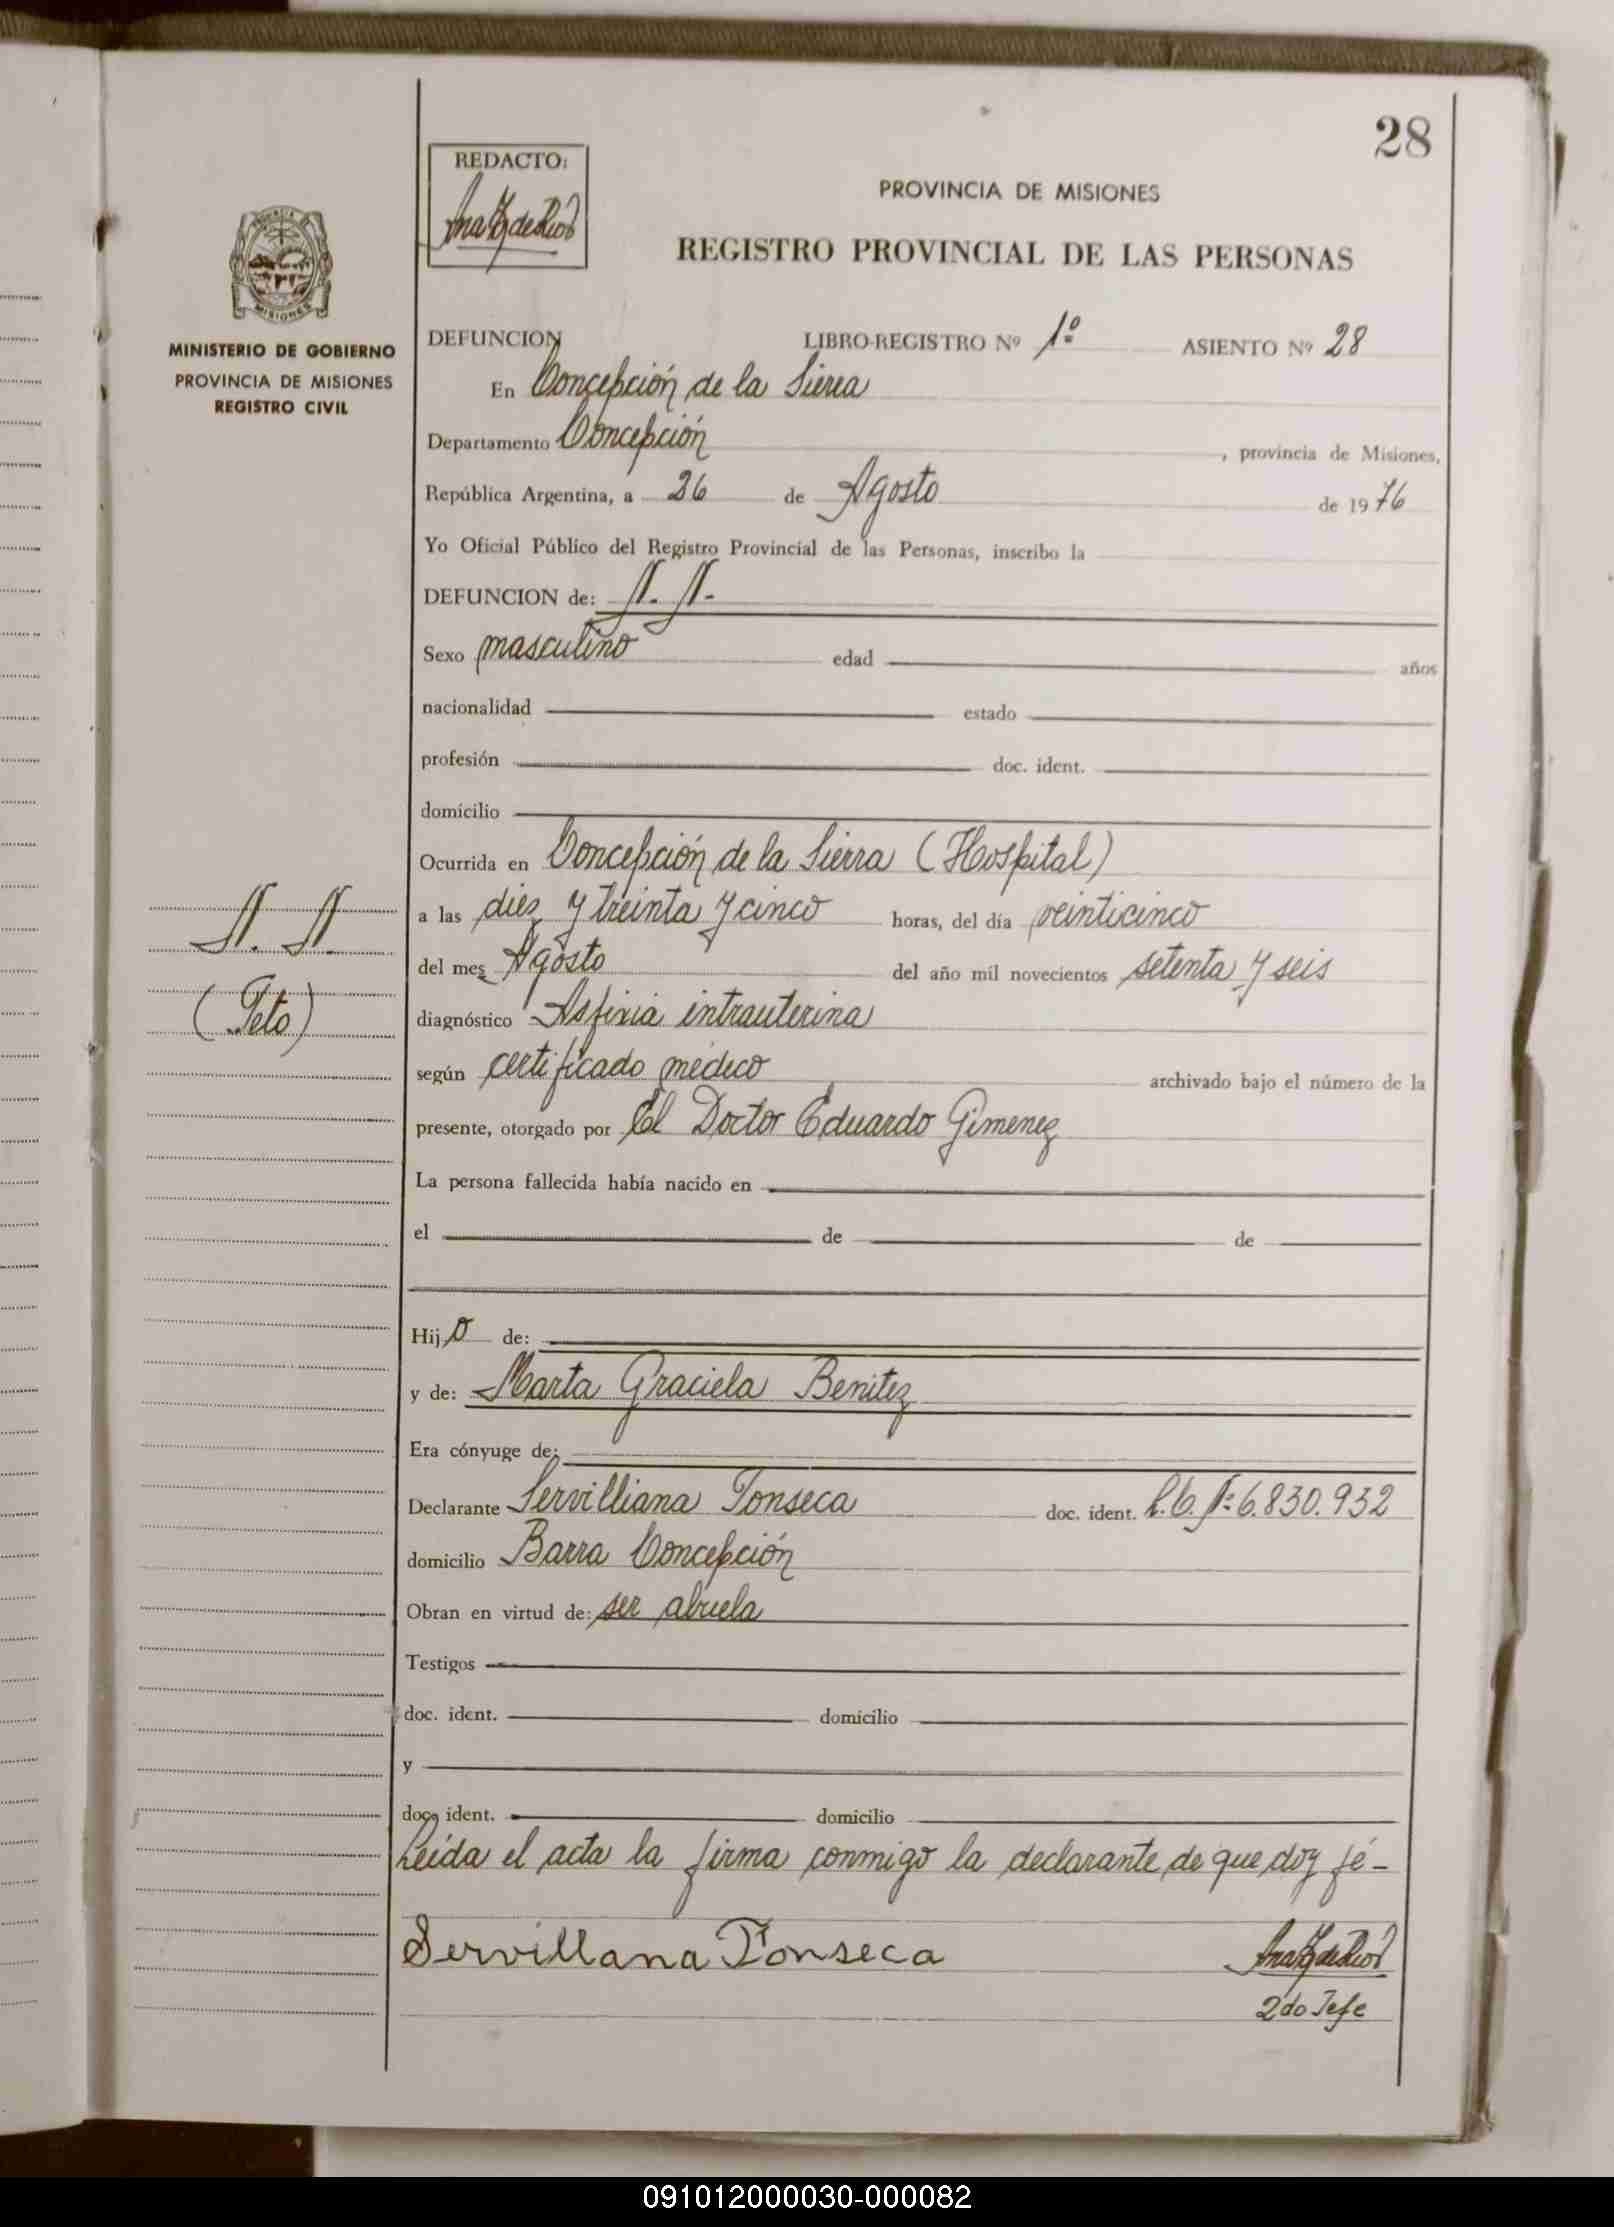 28
REDACTO:
PROVINCIA DE MISIONES
REGISTRO PROVINCIAL DE LAS PERSONAS
MISIONES
MINISTERIO DE GOBIERNO
PROVINCIA DE MISIONES
REGISTRO CIVIL
DEFUNCION LIBRO-REGISTRO Nº 1º ASIENTO Nº 28
En Concepción de la Sierra
Departamento Concepción, provincia de Misiones,
República Argentina, a 26 de Agosto de 1976
Yo Oficial Público del Registro Provincial de las Personas, inscribo la
DEFUNCION de: N. N.
Sexo masculino edad años
nacionalidad estado
profesión doc. ident.
domicilio
Ocurrida en Concepción de la Sierra (Hospital)
a las diez y treinta y cinco horas, del día veinticinco
N. N.
del mes Agosto del año mil novecientos setenta y seis
(Feto)
diagnóstico Asfixia intrauterina
según certificado médico archivado bajo el número de la
presente, otorgado por El Doctor Eduardo Gimenez
La persona fallecida había nacido en
el de de
Hijo de:
y de: Marta Graciela Benitez
Era cónyuge de:
Declarante Servilliana Fonseca doc. ident. L.C. Nº 6.830.932
domicilio Barra Concepción
Obran en virtud de: ser abuela
Testigos
doc. ident. domicilio
y
doc. ident. domicilio
Leída el acta la firma conmigo la declarante de que doy fé-
Servillana Fonseca
2do Jefe
091012000030-000082